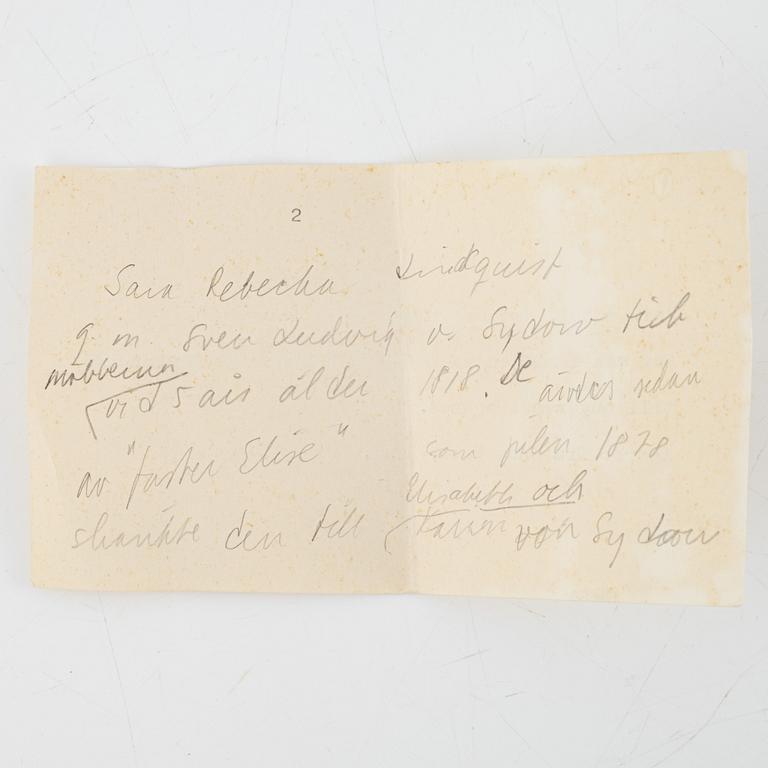 2
Sara Rebecka Lindquist
g. m. Sven Ludvig v. Sydow fick
möbberna
vid 5 års ålder 1818. De ärvdes sedan
av "faster Elise" som julen 1878
Elisabeth och
skänkte den till Karin von Sydow